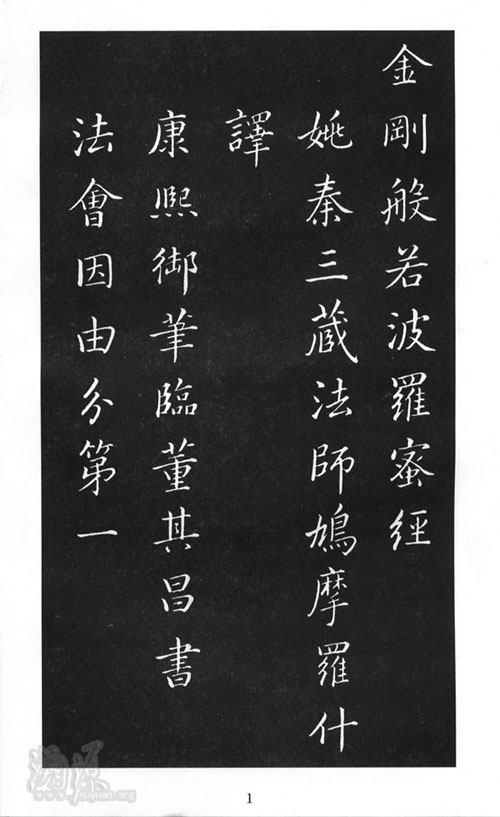 金剛般若波羅蜜經
姚秦三蔵法師鳩摩羅什
譯
康熙御筆臨董其昌書
法會因由分第一
1